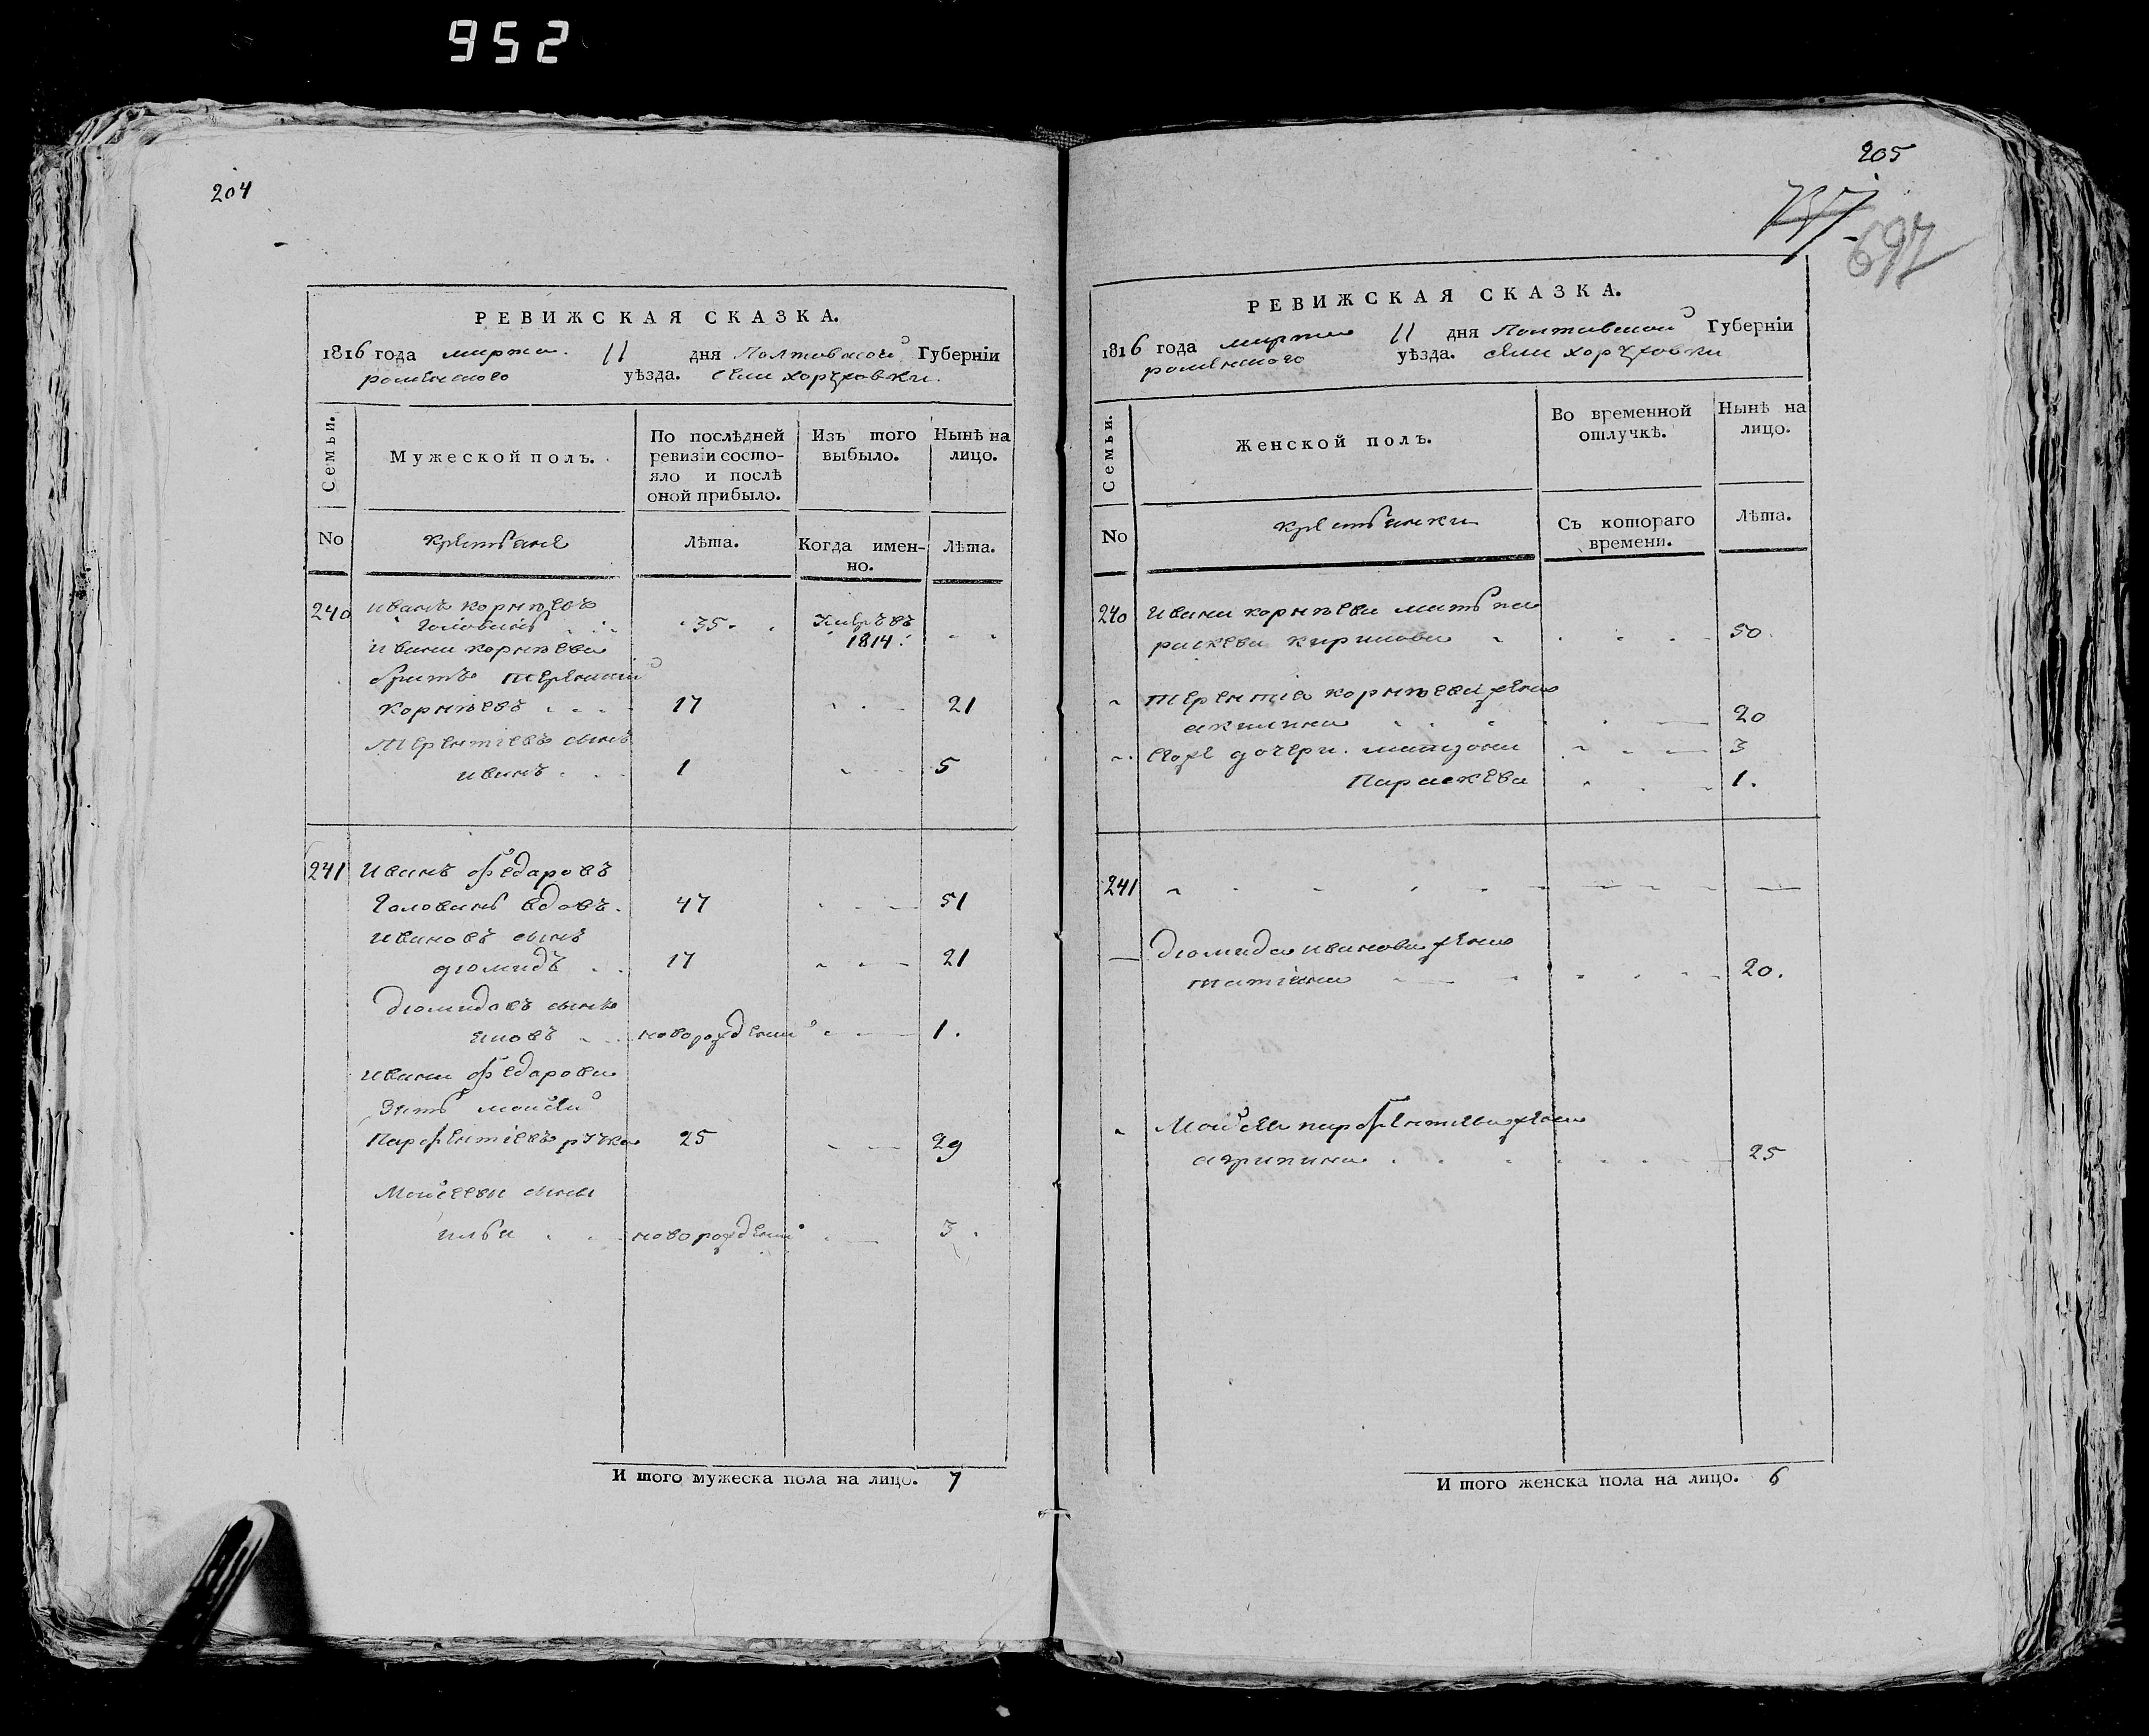 952
204
РЕВИЖСКАЯ СКАЗКА.
1816 года марта. 11 дня Полтавской Губерніи
роменского уѣзда. села хоружовки.
Семьи.
Мужеской полъ.
По послѣдней ревизіи состояло и послѣ оной прибыло.
Изъ того выбыло.
Нынѣ на лицо.
No
крестьяне
лѣта.
Когда именно.
лѣта.
240 иванъ корнѣевъ
головань 35 умре въ
ивана корнѣева 1814.
братъ терентий
корнѣевъ 17 21
терентіевъ сынъ
иванъ 1 5
241 иванъ федаровъ
головань вдовъ. 47 51
ивановъ сынъ
діомидъ 17 21
діомидовъ сынъ
яковъ новорожденный 1.
ивана федарова
зять моисей
парфентіевъ 25 29
моисеевъ сынъ
илья новорожденный 3.
И того мужеска пола на лицо. 7
205
697
РЕВИЖСКАЯ СКАЗКА.
1816 года марта 11 дня Полтавской Губерніи
роменского уѣзда. села хоружовки
Семьи.
Женской полъ.
Во временной отлучкѣ.
Нынѣ на лицо.
No
крестьянки
Съ котораго времени.
лѣта.
240 ивана корнѣева мать па
раскева 50.
терентіа корнѣева жена
акилина 20
его же дочери. 3
Параскева 1.
241
діомида иванова жена
татіана 20.
Моисея парфентьева жена
агрипина 25
И того женска пола на лицо. 6